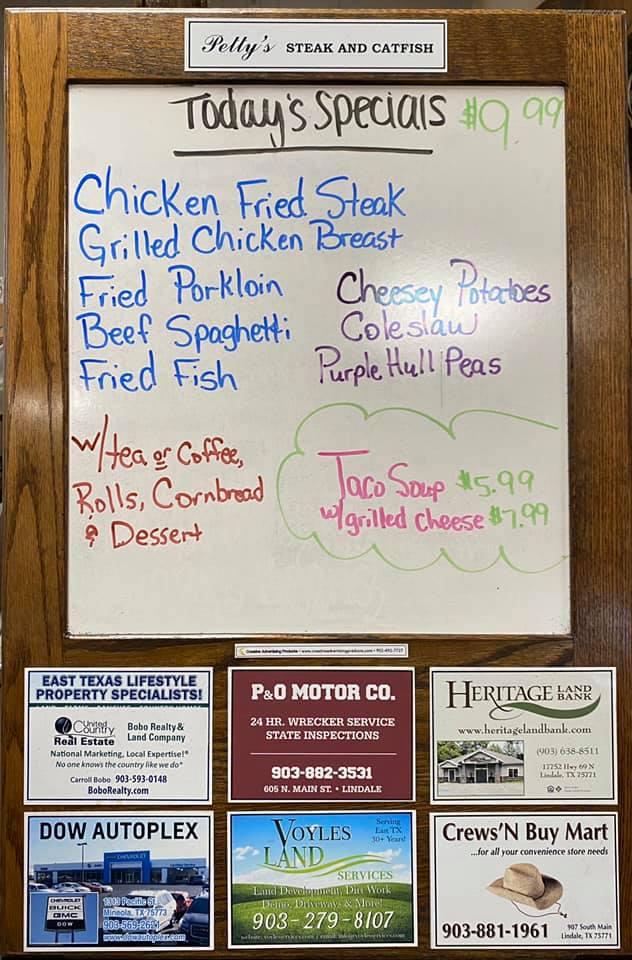 Petty's STEAK AND CATFISH
Today's Specials $9.99
Chicken Fried Steak
Grilled Chicken Breast
Fried Porkloin
Beef Spaghetti
Fried Fish
Cheesey Potatoes
Coleslaw
Purple Hull Peas
w/tea or Coffee,
Rolls, Cornbread
& Dessert
Taco Soup $5.99
w/grilled cheese $7.99
Creative Advertising Products
EAST TEXAS LIFESTYLE
PROPERTY SPECIALISTS!
United
Country
Real Estate
Bobo Realty &
Land Company
National Marketing, Local Expertise!®
No one knows the country like we do®
Carroll Bobo 903-593-0148
BoboRealty.com
P&O MOTOR CO.
24 HR. WRECKER SERVICE
STATE INSPECTIONS
903-882-3531
605 N. MAIN ST. • LINDALE
HERITAGE LAND
BANK
www.heritagelandbank.com
(903) 638-8511
17752 Hwy 69 N
Lindale, TX 75771
DOW AUTOPLEX
CHEVROLET
CHEVROLET
BUICK
GMC
DOW
1313 Pacific St.
Mineola, TX 75773
903-569-2691
www.dowautoplex.com
VOYLES
LAND
SERVICES
Serving
East TX
30+ Years!
Land Development, Dirt Work
Demo, Driveways & More!
903-279-8107
Crews'N Buy Mart
...for all your convenience store needs
903-881-1961
907 South Main
Lindale, Tx 75771